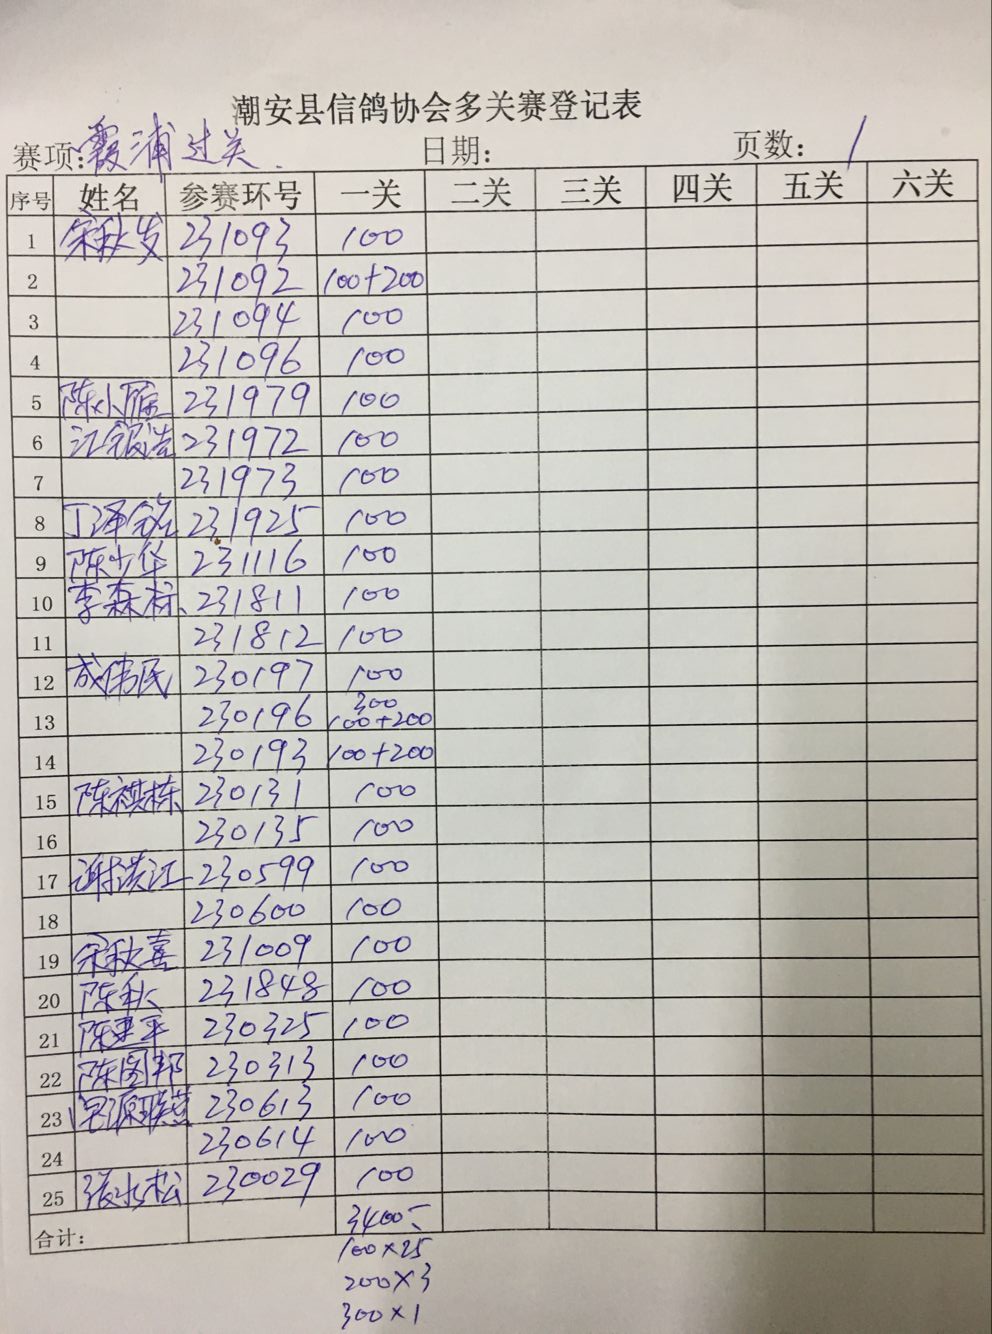 潮安县信鸽协会多关赛登记表
赛项:霞浦过关. 日期: 页数: 1
序号 姓名 参赛环号 一关 二关 三关 四关 五关 六关
1 余秋发 231093 100
2 231092 100+200
3 231094 100
4 231096 100
5 陈小雁 231979 100
6 江银浩 231972 100
7 231973 100
8 丁泽铭 231925 100
9 陈少华 231116 100
10 李森标 231811 100
11 231812 100
12 成伟民 230197 100
13 230196 300 100+200
14 230193 100+200
15 陈祺栋 230131 100
16 230135 100
17 谢洪江 230599 100
18 230600 100
19 余秋喜 231009 100
20 陈秋 231848 100
21 陈建平 230325 100
22 陈图邦 230313 100
23 230613 100
24 230614 100
25 张水松 230029 100
合计: 3400
100×25
200×3
300×1